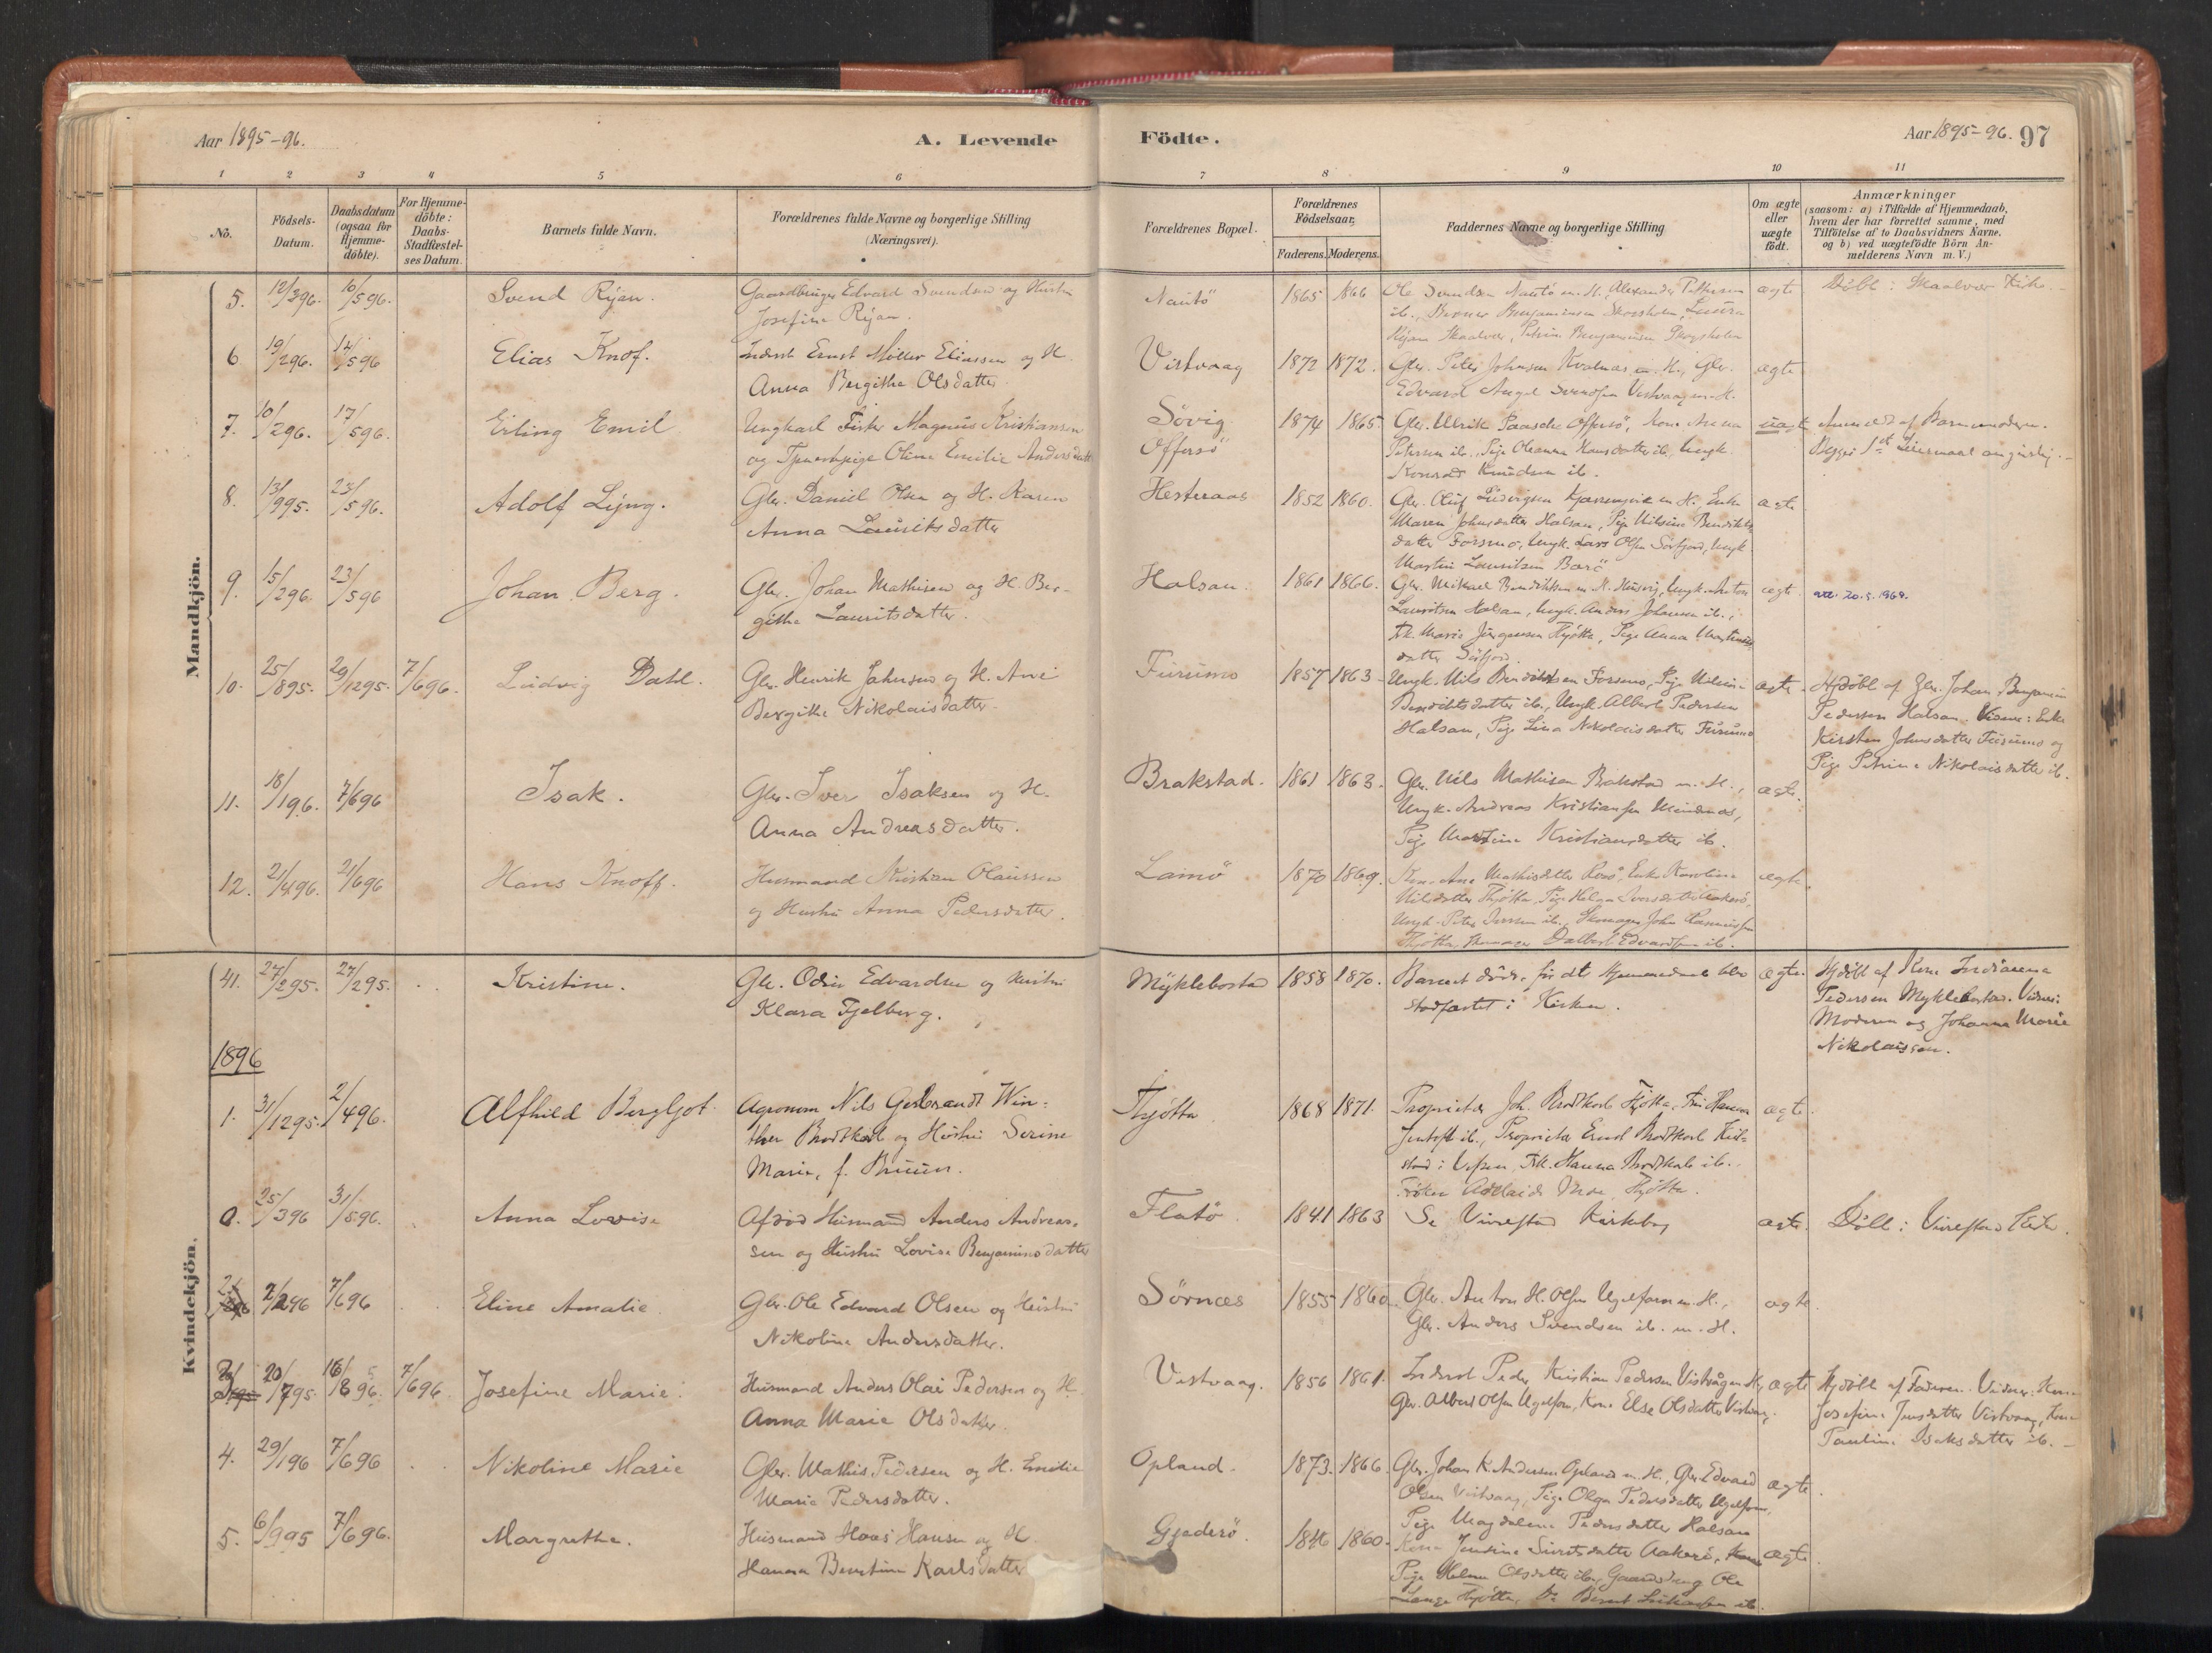 Aar 1895-96.
A. Levende
Födte.
Aar 1895-96. 97
1 2 3 4 5 6 7 8 9 10 11
No.
Födsels-
Datum.
Daabsdatum
(ogsaa for
Hjemme-
döbte).
For Hjemme-
döbte:
Daabs-
Stadfæstel-
ses Datum.
Barnets fulde Navn.
Forældrenes fulde Navne og borgerlige Stilling
(Næringsvei).
Forældrenes Bopæl.
Forældrenes
Födselsaar.
Faderens. Moderens.
Faddernes Navne og borgerlige Stilling
Om ægte
eller
uægte
födt.
Anmærkninger
(saasom: a) i Tilfælde af Hjemmedaab,
hvem der har forrettet samme, med
Tilföielse af to Daabsvidners Navne.
og b) ved uægtefödte Börn An-
melderens Navn m. V.)
Mandkjön.
5. 12/396. 10/596. Svend Rÿan.
Gaardbruger Edvard Svendsen og Hustru
Josefine Rÿan.
Nautö 1865 1866
Ole Svendsen Nautö m. H., Alexander Pettersen
ib., Berner Benjaminsen Skogsholm, Laura
Rÿan Skaalvær, Petrine Benjaminsen Skogsholm
ægte
Döbt i Skaalvær Kirke.
6. 19/296. 14/596 Elias Knof.
Inderst Ernst Möller Eliassen og H.
Anna Bergithe Olsdatter.
Vistvaag 1872 1872.
Gbr. Peter Johnsen Kvalnæs m. H., Gbr.
Edvard Angel Svendsen Vistvaag m. H.
ægte
7. 10/296. 17/596. Erling Emil
Ungkarl Fisker Magnus Kristiansen
og Tjenestpige Oline Emilie Andersdatt
Sövig
Offersö
1874 1865
Gbr. Ulrik Paasche Offersö, Kone Anna
Petersen ib., Pige Oleanna Hansdatter ib., Ungk.
Konrad Knudsen ib.
uægte
Anmeldt af Barnemoderen.
Begges 1ste Leiermaal angivelig.
8. 13/995. 23/596. Adolf Lÿng.
Gbr. Daniel Olsen og H. Karen
Anna Lauritsdatter
Hesteraas 1852 1860.
Gbr. Oluf Ludvigsen Kjærringvik m H., Enke
Maren Johnsdatter Halsan, Pige Nilsine Bendikts
datter Forsmo, Ungk. Lars Olsen Sörfjord, Ungk.
Martin Lauritsen Barö
ægte
9. 15/296. 23/596 Johan Berg.
Gbr. Johan Mathisen og H. Ber-
githe Lauritsdatter.
Halsan. 1861 1866.
Gbr. Mikael Bendiktsen m. H. Husvig, Ungk. Anton
Lauritsen Halsan, Ungk. Anders Johansen ib.,
Frk. Marie Jörgensen Thjötta, Pige Anna Martinus
datter Sörfjord.
ægte.
att. 20.5.1964.
10. 25/895. 29/1295. 7/696. Ludvig Dahl.
Gbr. Henrik Johnsen og H. Ane
Bergithe Nikolaisdatter.
Furumo 1857 1863
Ungk. Nils Bendiktsen Forsmo, Pige Nilsine
Bendiktsdatter ib., Ungk. Albert Pedersen
Halsan, Pige Lina Nikolaisdatter Furumo
ægte
Hjdöbt af Gbr. Johan Benjamin
Pedersen Halsan. Vidner: Enke
Kirsten Johnsdatter Furumo og
Pige Petrine Nikolaisdatter ib.
11. 18/196. 7/696 Isak.
Gbr. Iver Isaksen og H.
Anna Andreasdatter.
Brakstad. 1861 1863.
Gbr. Nils Mathisen Brakstad m. H.,
Ungk. Andreas Kristiansen Mindnæs,
Pige Martine Kristiansdatter ib.
ægte.
12. 21/496. 21/696 Hans Knoff.
Husmand Kristian Olaussen
og Hustru Anna Pedersdatter.
Lamö 1870 1869.
Kone Ane Mathisdatter Rosö, Enke Karoline
Nilsdatter Thjötta, Pige Helga Iversdatter Aakerö,
Ungk. Peter Iversen ib., Skomager John Rasmussen
Thjötta, Dalbert Edvardsen ib.
ægte.
Kvindekjön.
41. 27/295. 27/295. Kristine.
Gbr. Odin Edvardsen og Hustru
Klara Fjelberg.
Mÿklebostad 1858 1870.
Barnet döde för dets Hjemmedaab blev
stadfæstet i Kirken.
ægte.
Hjdöbt af Kone Indianna
Pedersen Myklebostad. Vidner:
Moderen og Johanna Marie
Nikolaissen.
1896
1. 31/1295. 2/496. Alfhild Bergljot.
Agronom Nils Gerbrandt Win-
ther Brodtkorb og Hustru Serine
Marie, f. Bruun.
Thjötta 1868 1871.
Proprietær Joh. Brodtkorb Tjötta, Fru Hanna
Jentoft ib., Proprietær Ernst Brodtkorb Kul-
stad i Vefsen, Frk. Hanna Brodtkorb ib.,
Fröken Adelaide Thjötta.
ægte.
0. 25/396 31/596. Anna Lovise
Afdöd Husmand Anders Andreas-
sen og Hustru Lovise Benjaminsdatter
Flatö. 1841 1863
Se Vivestad Kirkebog
ægte.
Döbt i Vivestad Kirke.
2. 2/296 7/696 Eline Amalie
Gbr. Ole Edvard Olsen og Hustru
Nikoline Andersdatter.
Sörnæs 1855 1860.
Gbr. Anton H. Olsen Ugelfom m. H.,
Gbr. Anders Svendsen ib. m. H.
ægte.
3. 20/795. 16/896. 7/696. Josefine Marie.
Husmand Anders Olai Pedersen og H.
Anna Marie Olsdatter.
Vistvaag. 1856 1861.
Inderst Peder Kristian Pedersen Vistvågen m. H.,
Gbr. Albert Olsen Ugelfom, Kone Else Olsdatter Vistvaag.
ægte
Hjdöbt af Faderen. Vidner: Kone
Josefine Jensdatter Vistvaag, Kone
Pauline Isaksdatter ib.
4. 29/196 7/696 Nikoline Marie
Gbr. Mathis Pedersen og H. Emilie
Marie Pedersdatter.
Opland. 1873. 1866.
Gbr. Johan K. Andersen Opland m. H., Gbr. Edvard
Olsen Vistvaag, Pige Olga Pedersdatter Ugelfom,
Pige Magdalene Pedersdatter Halsan
ægte.
5. 6/995 7/696. Margrethe.
Husmand Hans Hansen og H.
Hanna Berntine Karlsdatter
Gjæderö. 1846 1860.
Kone Jensine Sivertsdatter Aakerö,
Pige Helene Olsdatter ib., Gaardsdreng Ole
Lange Thjötta, Do Bernt ib.
ægte.